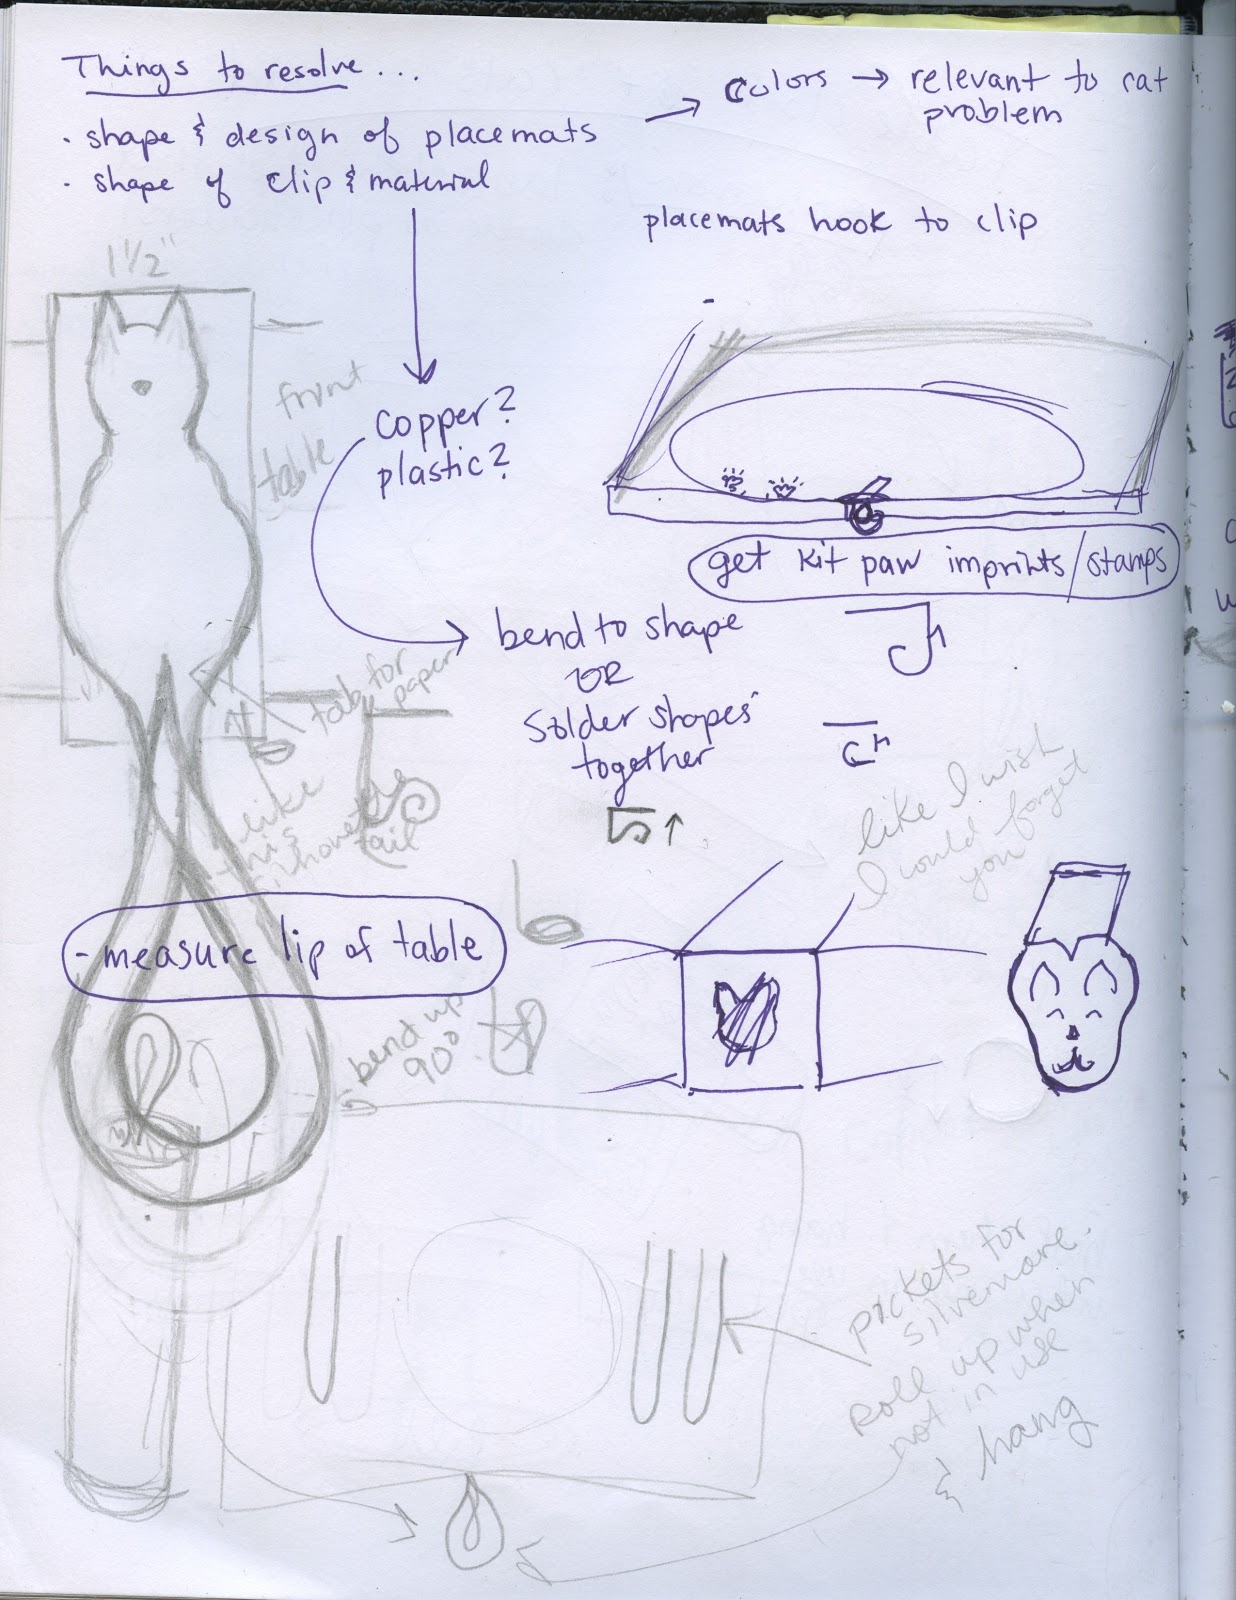 Things to resolve...
· shape & design of placemats
· shape of clip & material
→ colors → relevant to cat
problem
placemats hook to clip
1 1/2"
front
table
copper?
plastic?
get kit paw imprints/stamps
bend to shape
OR
Solder shapes
together
tab for
paper
like
this
silhouette
tail
like I wish
I could forget
you
- measure lip of table
bend up
90°
pockets for
silverware.
Roll up when
not in use
& hang